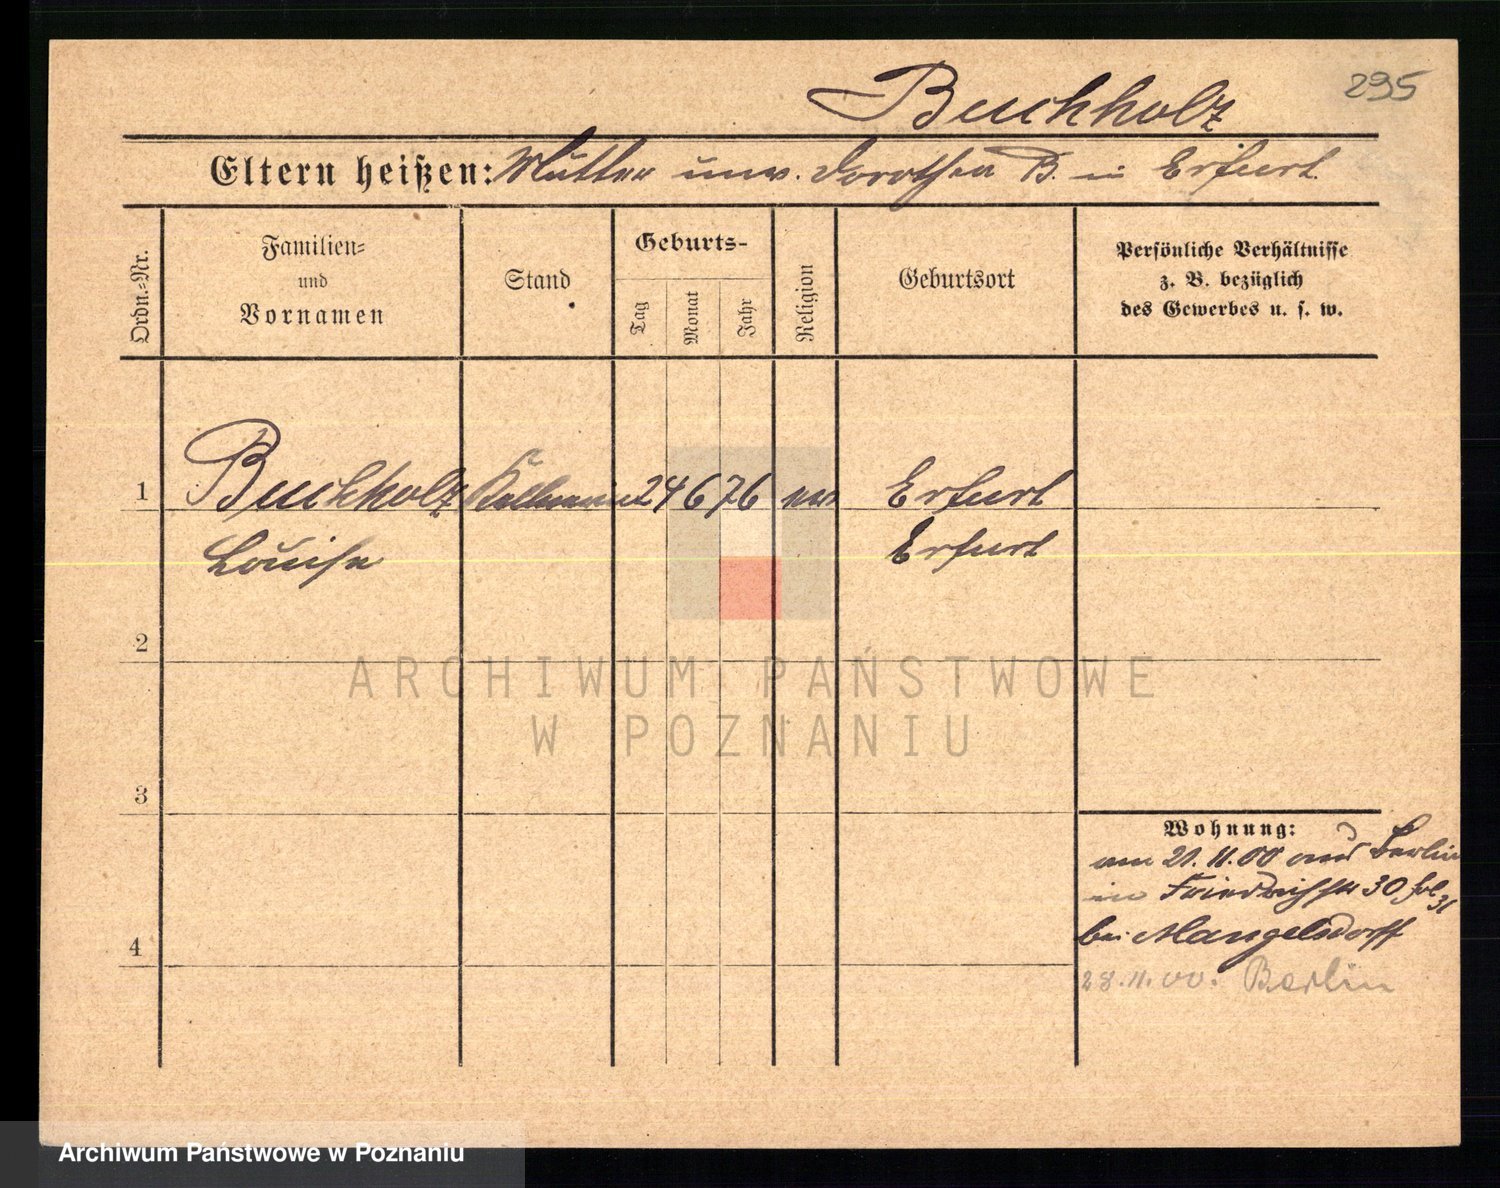 295
Buchholz
Eltern heißen: Mutter unv. Dorothea B. in Erfurt
Ordn.-Nr.
Familien-
und
Vornamen
Stand
Geburts-
Tag
Monat
Jahr
Religion
Geburtsort
Persönliche Verhältnisse
z. B. bezüglich
des Gewerbes u. s. w.
1 Buchholz Kellnerin 24 6 76 ev Erfurt
Louise Erfurt
2
3
4
Wohnung:
am 21.11.00 aus Berlin
in Friedrichstr 30
bei Mangelsdorff
28.11.00. Berlin
ARCHIWUM PAŃSTWOWE
W POZNANIU
Archiwum Państwowe w Poznaniu